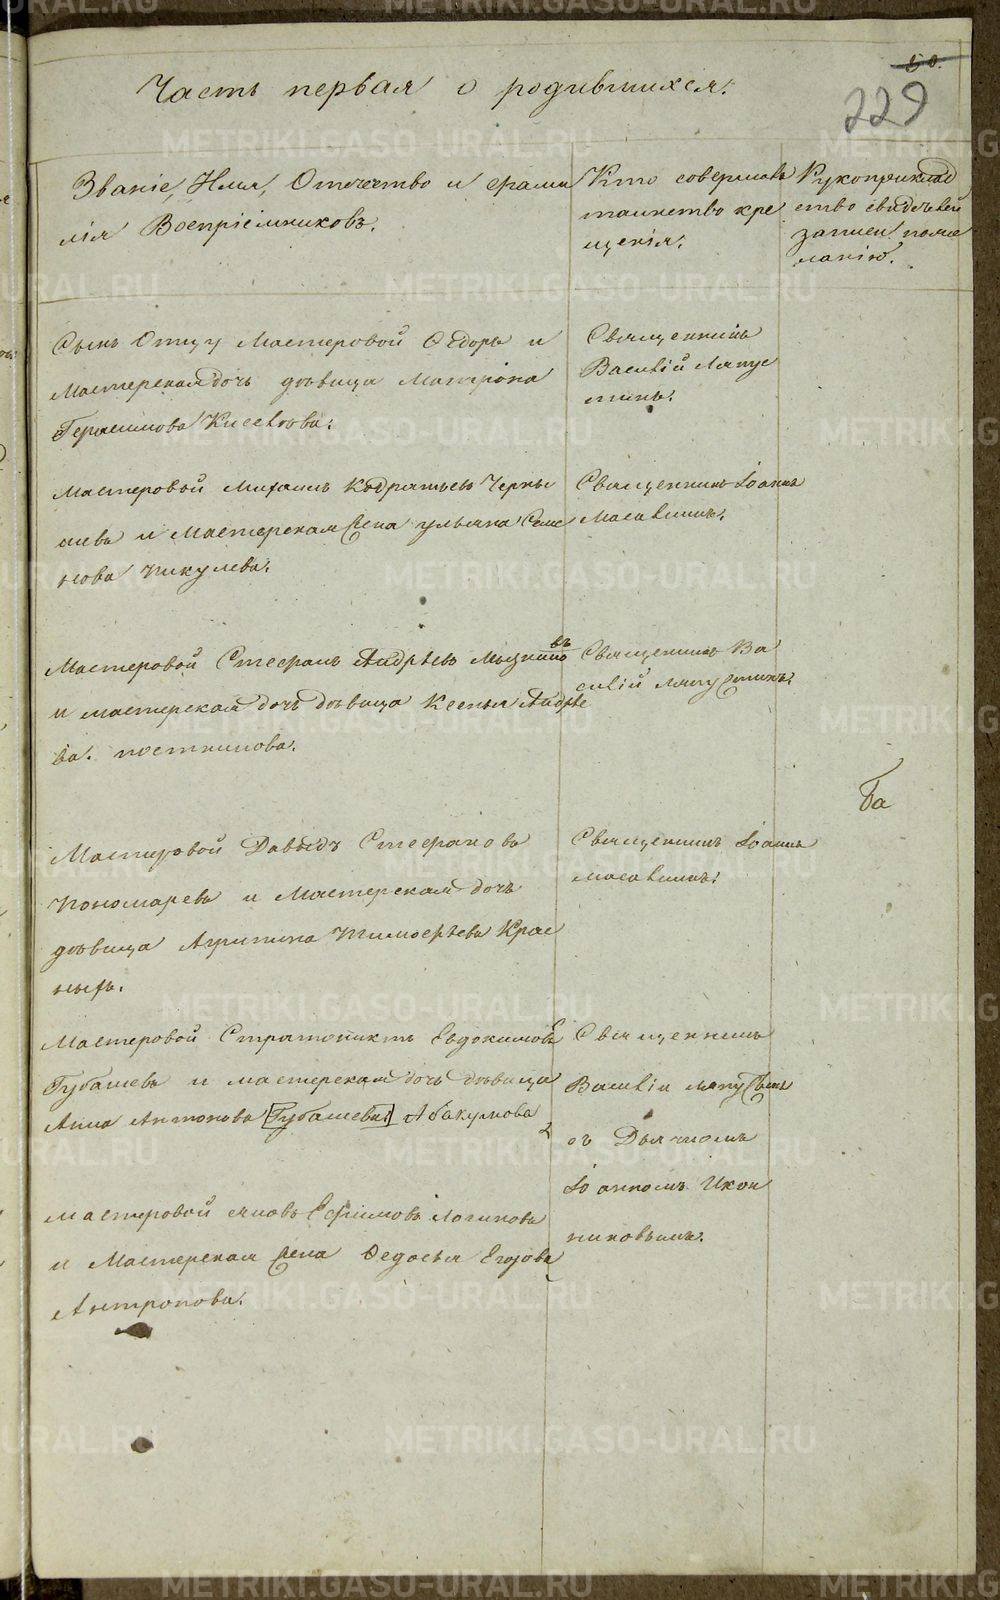 Часть первая о родившихся.
60.
229
Званіе, Имя, Отечество и фами
лія Воспріемниковъ.
Кто совершалъ
таинство кре
щенія.
Рукоприклад
ство свидѣтелей
записи по же
ланію.
Сынъ Отцу Мастеровой Ѳедоръ и
Мастерская дочь дѣвица Матрона
Герасимова
Священникъ
Василій Ляпус
тинъ.
Мастеровой Михаилъ Кодратьевъ Черны
шевъ и Мастерская жена ульяна Семе
нова Пикулева.
Священникъ Іоаннъ
Мастеровой Стефанъ Андрѣевъ
въ
и мастерская дочь дѣвица Ксенья Андрѣе
ва. постникова.
Священникъ Ва
силій Ляпустинъ.
Ба
Мастеровой Давыдъ Стефановъ
Пономаревъ и Мастерская дочь
дѣвица Агрипина Тимофѣева Крас
ныхъ.
Священникъ Іоаннъ
Мастеровой Стратоникъ Евдокимовъ
Губашевъ и мастерская дочь дѣвица
Анна Антонова [Губашева] Абакумова
Священникъ
Василій Ляпустинъ
съ Дьячкомъ
Іоанномъ Икон
никовымъ.
мастеровой яковъ Ефимовъ Логиновъ
и Мастерская жена Федосья Егорова
Антропова.
METRIKI.GASO-URAL.RU